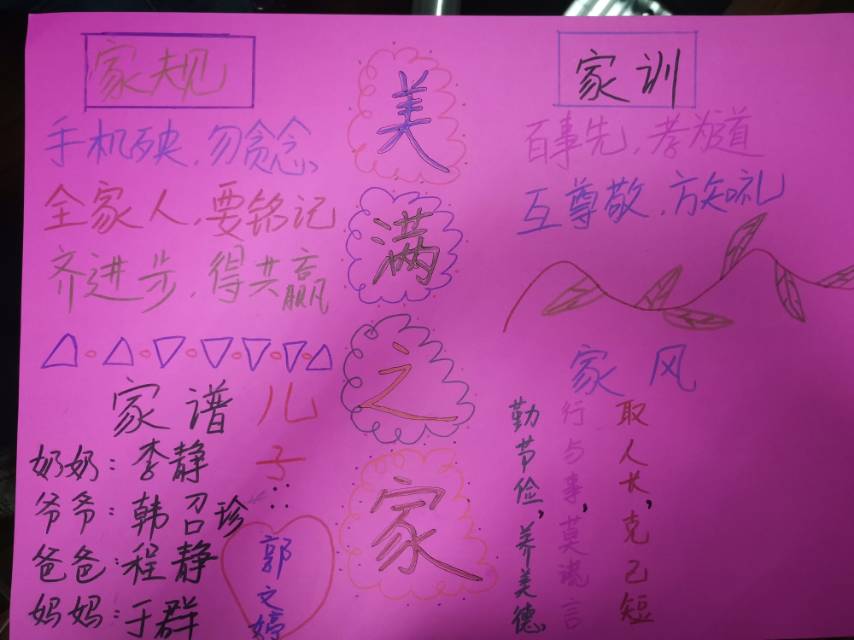 家规
手机殃,勿贪念、
全家人,要铭记
齐进步,得共赢
美满之家
家训
百事先,孝为道
互尊敬,方知礼
家谱
奶奶:李静
爷爷:韩召珍
爸爸:程静
妈妈:于群
儿子:
郭文婷
家风
取人长,克己短
行与事,莫谎言
勤节俭,养美德